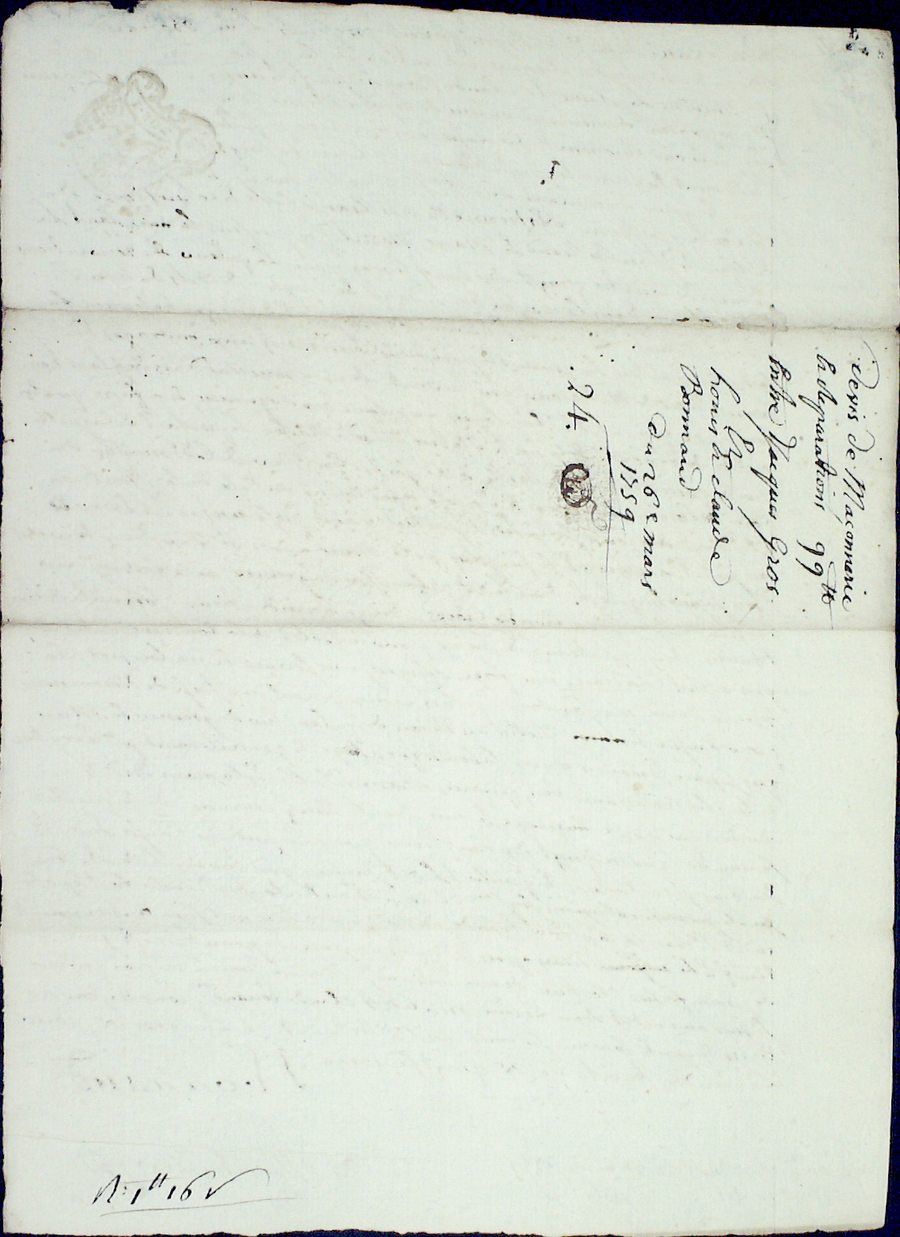 Devis de Maçonnerie
& Reparations 99 ₶
Entre Jacques Gros
Et
Louis & Claude
Bonnaud
du 26e mars
1759
. 24.
R: 1 ₶ 16 s